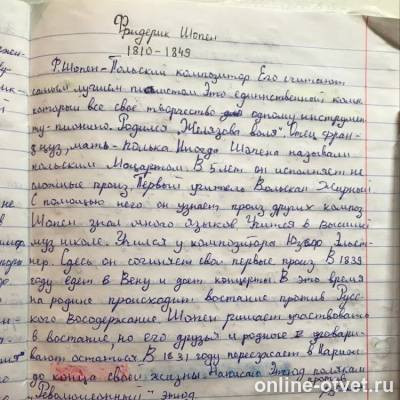 Фридерик Шопен
1810-1849
Ф.Шопен-Польский композитор Его считают
самым лучшим пианистом. Это единственный комп
который все свое творчество одному инструмен
ту-пиянино. Родился "Желязова воля". Отец фран-
цуз, мать-полька Иногда Шопена называли
польским Моцартом. В 5 лет он исполняет не
сложные произ. Первый учитель Войжех Живный
С помощью него он узнает произ других композ
Шопен знал много языков Учится в Высшей
муз школе. Учился у композитора Юзеф Эльст-
нер. Здесь он сочиняет свои первые произ. В 1839
году едет в Вену и дает концерты. В это время
на родине происходит востание против Русс-
кого Шопен решает участвовать
в востание, но его друзья и родное угова
вают остаться. В 1831 году переезжает в Париж
до конца своей жизни. Написал Этюд полякам
"Революционный" этюд.
online-otvet.ru